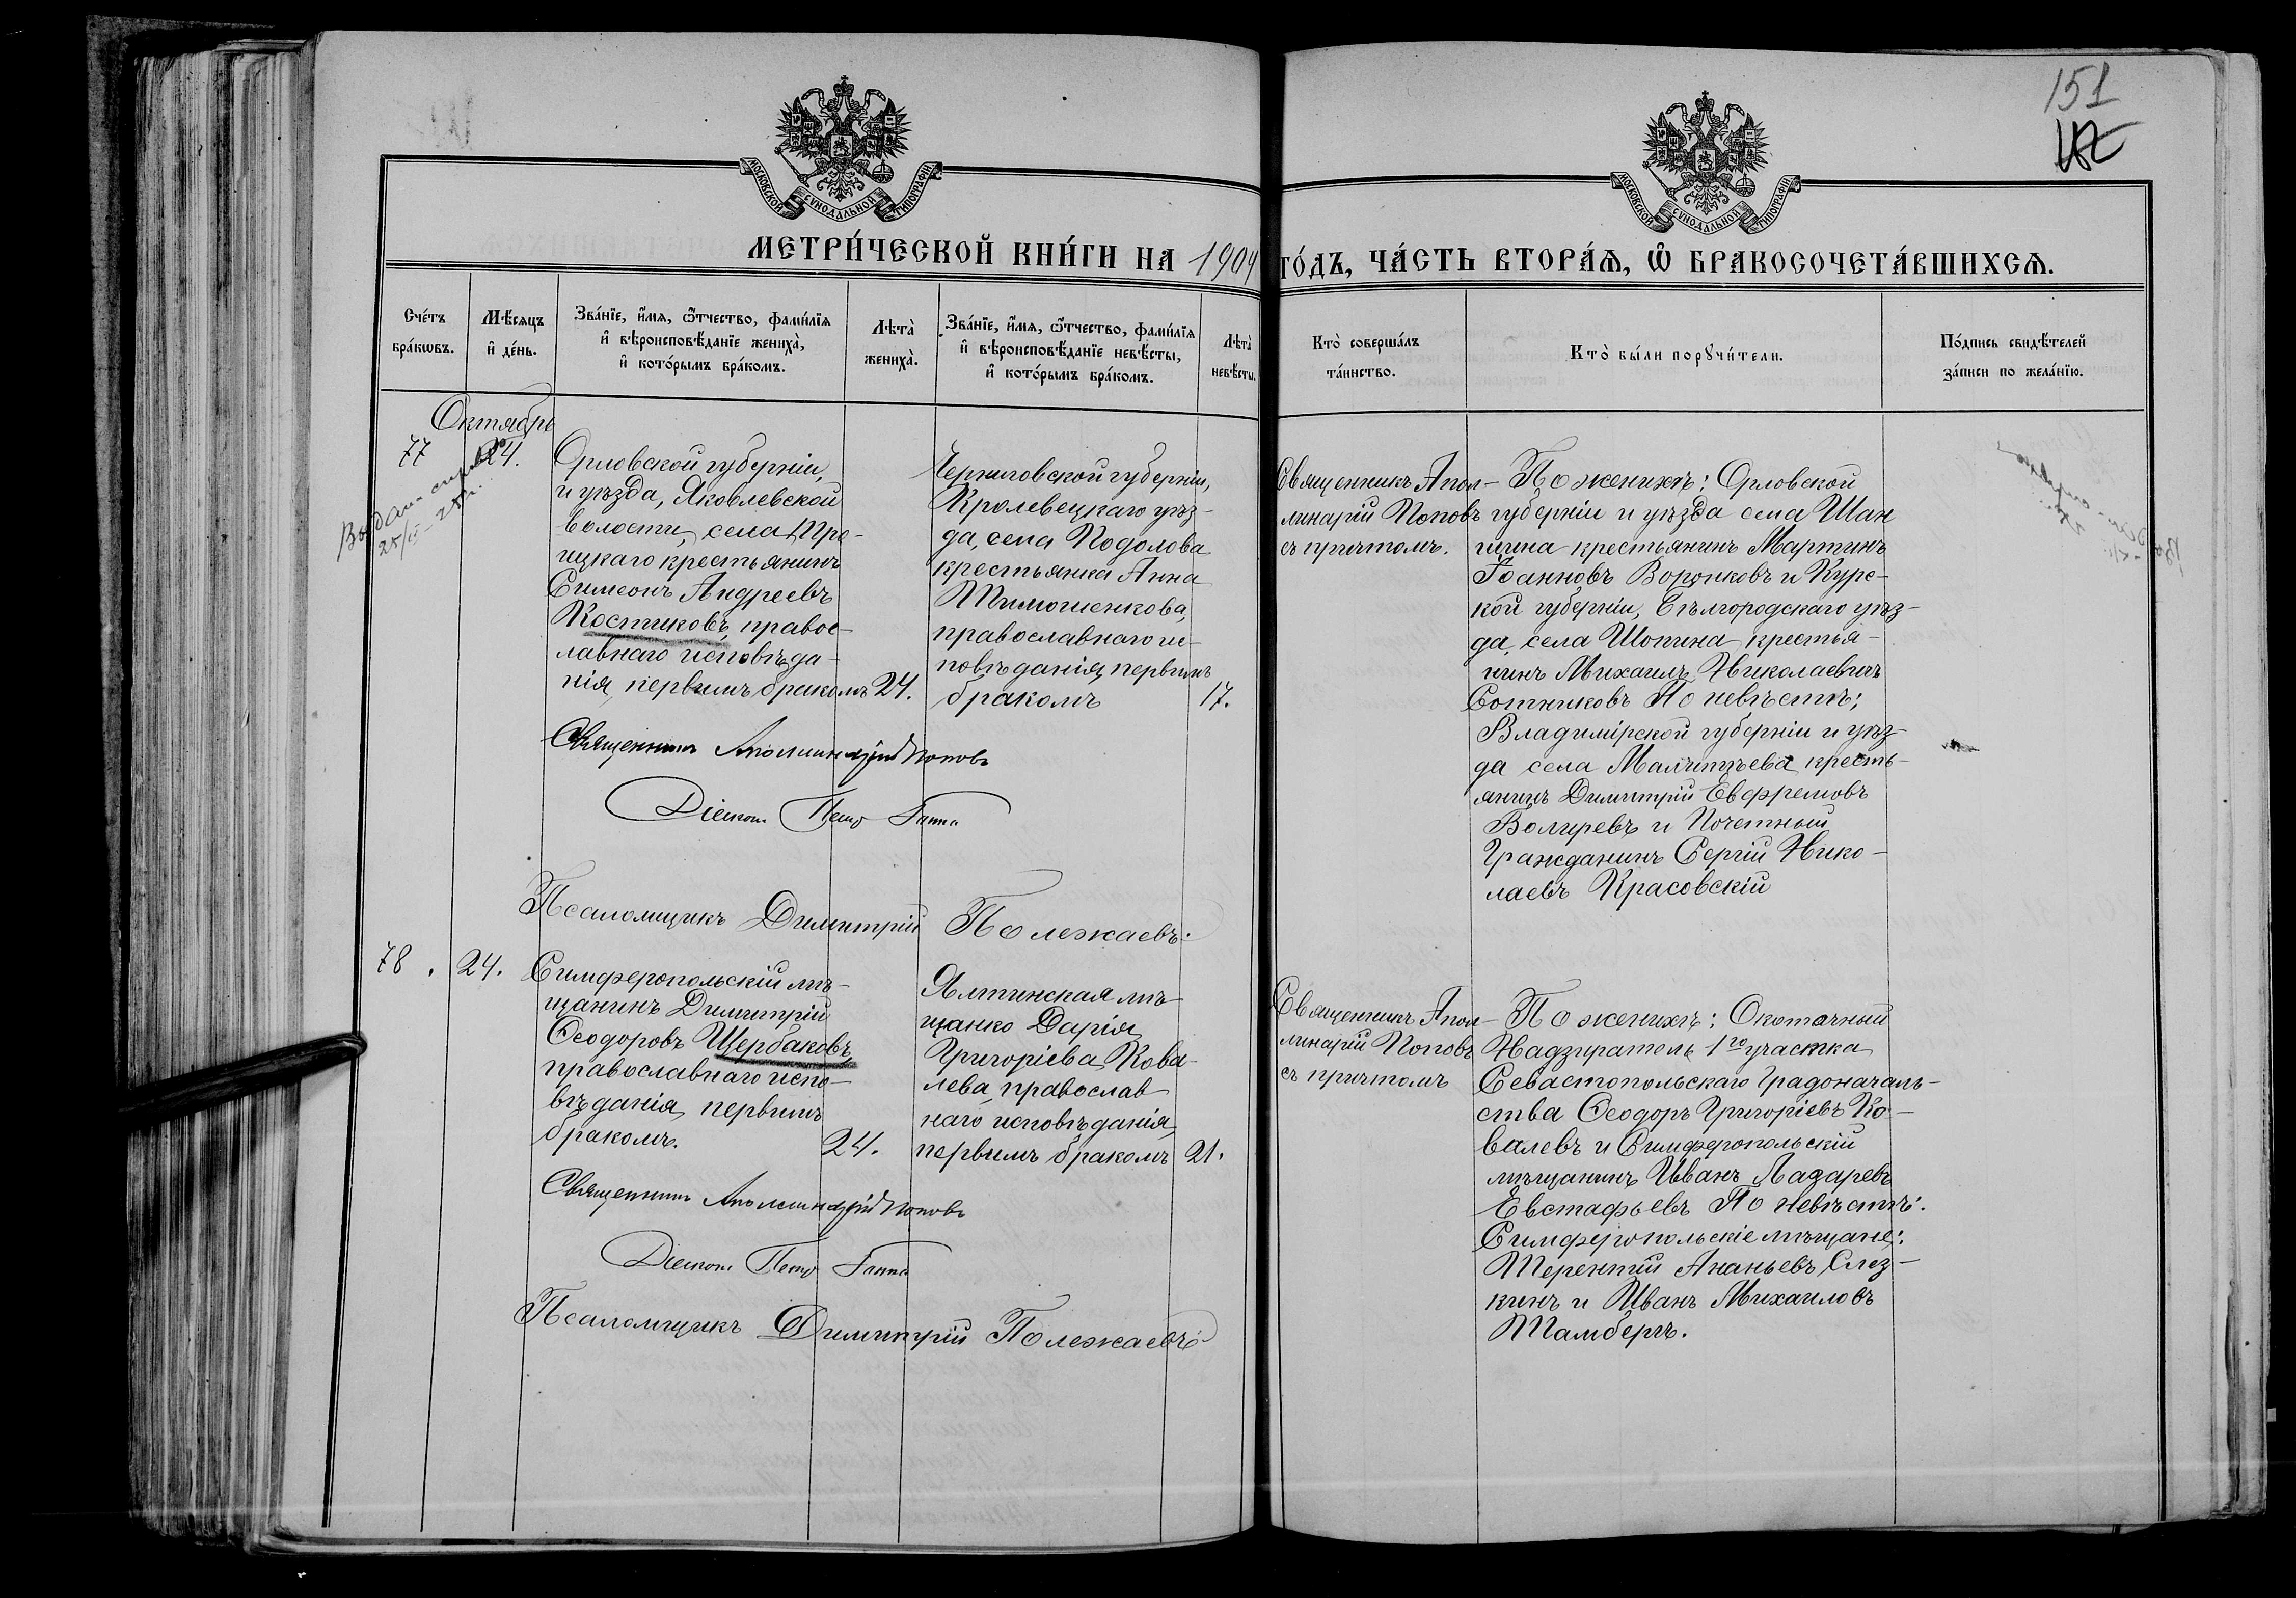 151
МОСКОВСКОЙ СѴНОДАЛЬНОЙ ТИПОГРАФІИ
МОСКОВСКОЙ СѴНОДАЛЬНОЙ ТИПОГРАФІИ
МЕТРИ́ЧЕСКОЙ КНИ́ГИ НА 1904 ГО́ДЪ, ЧА́СТЬ ВТОРА́Ѧ, Ѽ БРАКОСОЧЕТА́ВШИХСѦ.
Сче́тъ
бра́кѡвъ.
Мѣ́сяцъ
и҆ де́нь.
Зва́нїе, и҆́мя, ѻ҆́тчество, фами́лїя
и҆ вѣроисповѣ́данїе жениха̀,
и҆ кото́рымъ бра́комъ.
Лѣта̀
жениха̀.
Зва́нїе, и҆́мя, ѻ҆́тчество, фами́лїя
и҆ вѣроисповѣ́данїе невѣ́сты,
и҆ кото́рымъ бра́комъ.
Лѣта̀
невѣ́сты.
Кто̀ соверша́лъ
та́инство.
Кто̀ бы́ли порꙋчи́тели.
По́дпись свидѣ́телей
за́писи по жела́нїю.
Октябрь
77
24.
Выдан
25/
Орловской губерніи,
и уѣзда, Яковлевской
волости, села Тро-
ицкаго крестьянинъ
Симеонъ Андреевъ
Костиковъ, правос-
лавнаго исповѣда-
нія, первымъ бракомъ
24.
Черниловской губерніи,
Кролевецкаго уѣз-
да, села Подолова
крестьянка Анна
Тимошенкова,
православнаго ис-
повѣданія, первымъ
бракомъ
17.
Священникъ Апол-
линарій Поповъ
съ причтомъ.
По женихѣ: Орловской
губерніи и уѣзда села Шан
шина крестьянинъ Мартинъ
Іоанновъ Воронковъ и Курс-
кой губерніи, Бѣлгородскаго уѣз-
да, села Шопина крестья-
нинъ Михаилъ Николаевичъ
Сотниковъ По невѣстѣ;
Владимірской губерніи и уѣз-
да села кресть-
янинъ Димитрій Евфремовъ
и Почетный
Гражданинъ Сергій Нико-
лаевъ Красовскій
Священникъ Аполлинарій Поповъ
Діаконъ Петръ Ганна
Псаломщикъ Димитрій Полежаевъ.
78.
24.
Симферопольскій мѣ-
щанинъ Димитрій
Ѳеодоровъ Щербаковъ,
православнаго испо-
вѣданія, первымъ
бракомъ.
24.
Ялтинская мѣ-
щанко Дарія
Григоріева Кова-
лева, православ
наго исповѣданія,
первымъ бракомъ
21.
Священникъ Апол-
линарій Поповъ
съ причтомъ
По женихѣ: Околочный
Надзиратель 1го участка
Севастопольскаго Градоначаль-
ства Ѳеодоръ Григоріевъ Ко-
валевъ и Симферопольскій
мѣщанинъ Иванъ Лазаревъ
Евстафьевъ По невѣстѣ:
Симферопольскіе мѣщане:
Терентій Ананьевъ Слез-
кинъ и Иванъ Михаиловъ
Тамбергъ.
Священникъ Аполлинарій Поповъ
Діаконъ Петръ Ганна
Псаломщикъ Димитрій Полежаевъ